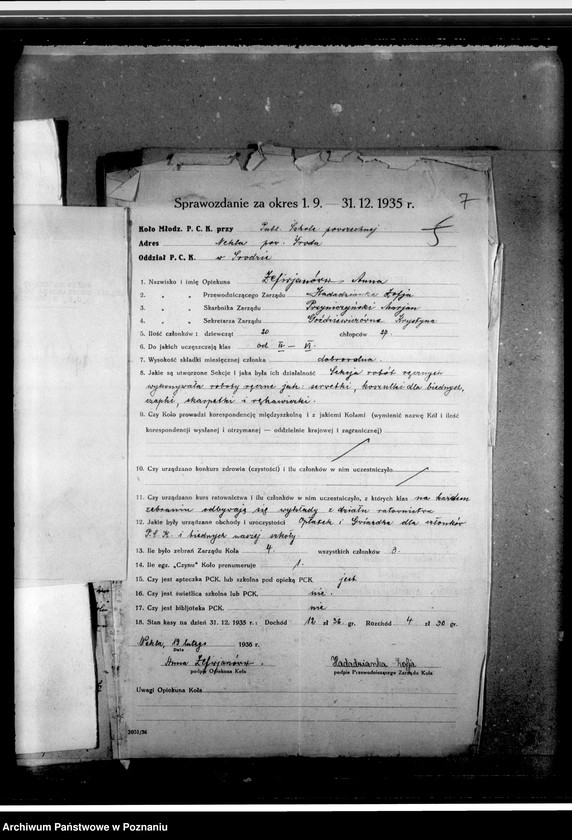 7
Sprawozdanie za okres 1. 9. — 31. 12. 1935 r.
Koło Młodz. P. C. K. przy Publ. Szkole powszechnej
Adres Nekla pow. Środa
Oddział P. C. K. w Środzie
1. Nazwisko i imię Opiekuna Anna
2. „ „ Przewodniczącego Zarządu Zofja
3. „ „ Skarbnika Zarządu Marjan
4. „ „ Sekretarza Zarządu Krystyna
5. Ilość członków: dziewcząt 20 chłopców 27.
6. Do jakich uczęszczają klas od — VI.
7. Wysokość składki miesięcznej członka dobrowolna.
8. Jakie są utworzone Sekcje i jaka była ich działalność Sekcja robót ręcznych
wykonywała roboty ręczne jak: serwetki, koszulki dla biednych,
czapki, skarpetki i rękawiczki.
9. Czy Koło prowadzi korespondencję międzyszkolną i z jakiemi Kołami (wymienić nazwę Kół i ilość
korespondencji wysłanej i otrzymanej — oddzielnie krajowej i zagranicznej)
10. Czy urządzano konkurs zdrowia (czystości) i ilu członków w nim uczestniczyło
11. Czy urządzano kurs ratownictwa i ilu członków w nim uczestniczyło, z których klas na każdem
zebraniu odbywają się wykłady z działu ratownictwa
12. Jakie były urządzane obchody i uroczystości Opłatek i Gwiazdka dla członków
P.C.K. i biednych naszej szkoły
13. Ile było zebrań Zarządu Koła 4 wszystkich członków 3.
14. Ile egz. „Czynu" Koło prenumeruje 1.
15. Czy jest apteczka PCK. lub szkolna pod opieką PCK jest
16. Czy jest świetlica szkolna lub PCK. nie.
17. Czy jest bibljoteka PCK. nie
18. Stan kasy na dzień 31. 12. 1935 r.: Dochód 12 zł 36 gr. Rozchód 4 zł 30 gr.
Nekla, 19 lutego 1936 r.
Data
Anna
podpis Opiekuna Koła
Zofja
podpis Przewodniczącego Zarządu Koła
Uwagi Opiekuna Koła
2051/36
Archiwum Państwowe w Poznaniu